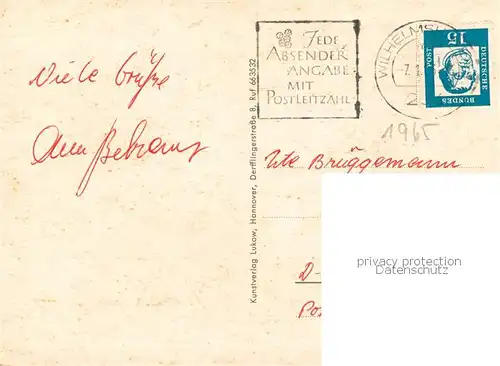 JEDE
ABSENDER
ANGABE
MIT
POSTLEITZAHL
WILHELMSH
7.
15
POST
BUNDES
DEUTSCHE
1965
Viele Grüße
Kunstverlag Lukow, Hannover, Derfflingerstraße 8, Ruf 663532
Ute Brüggemann
privacy protection
Datenschutz
D-
Po